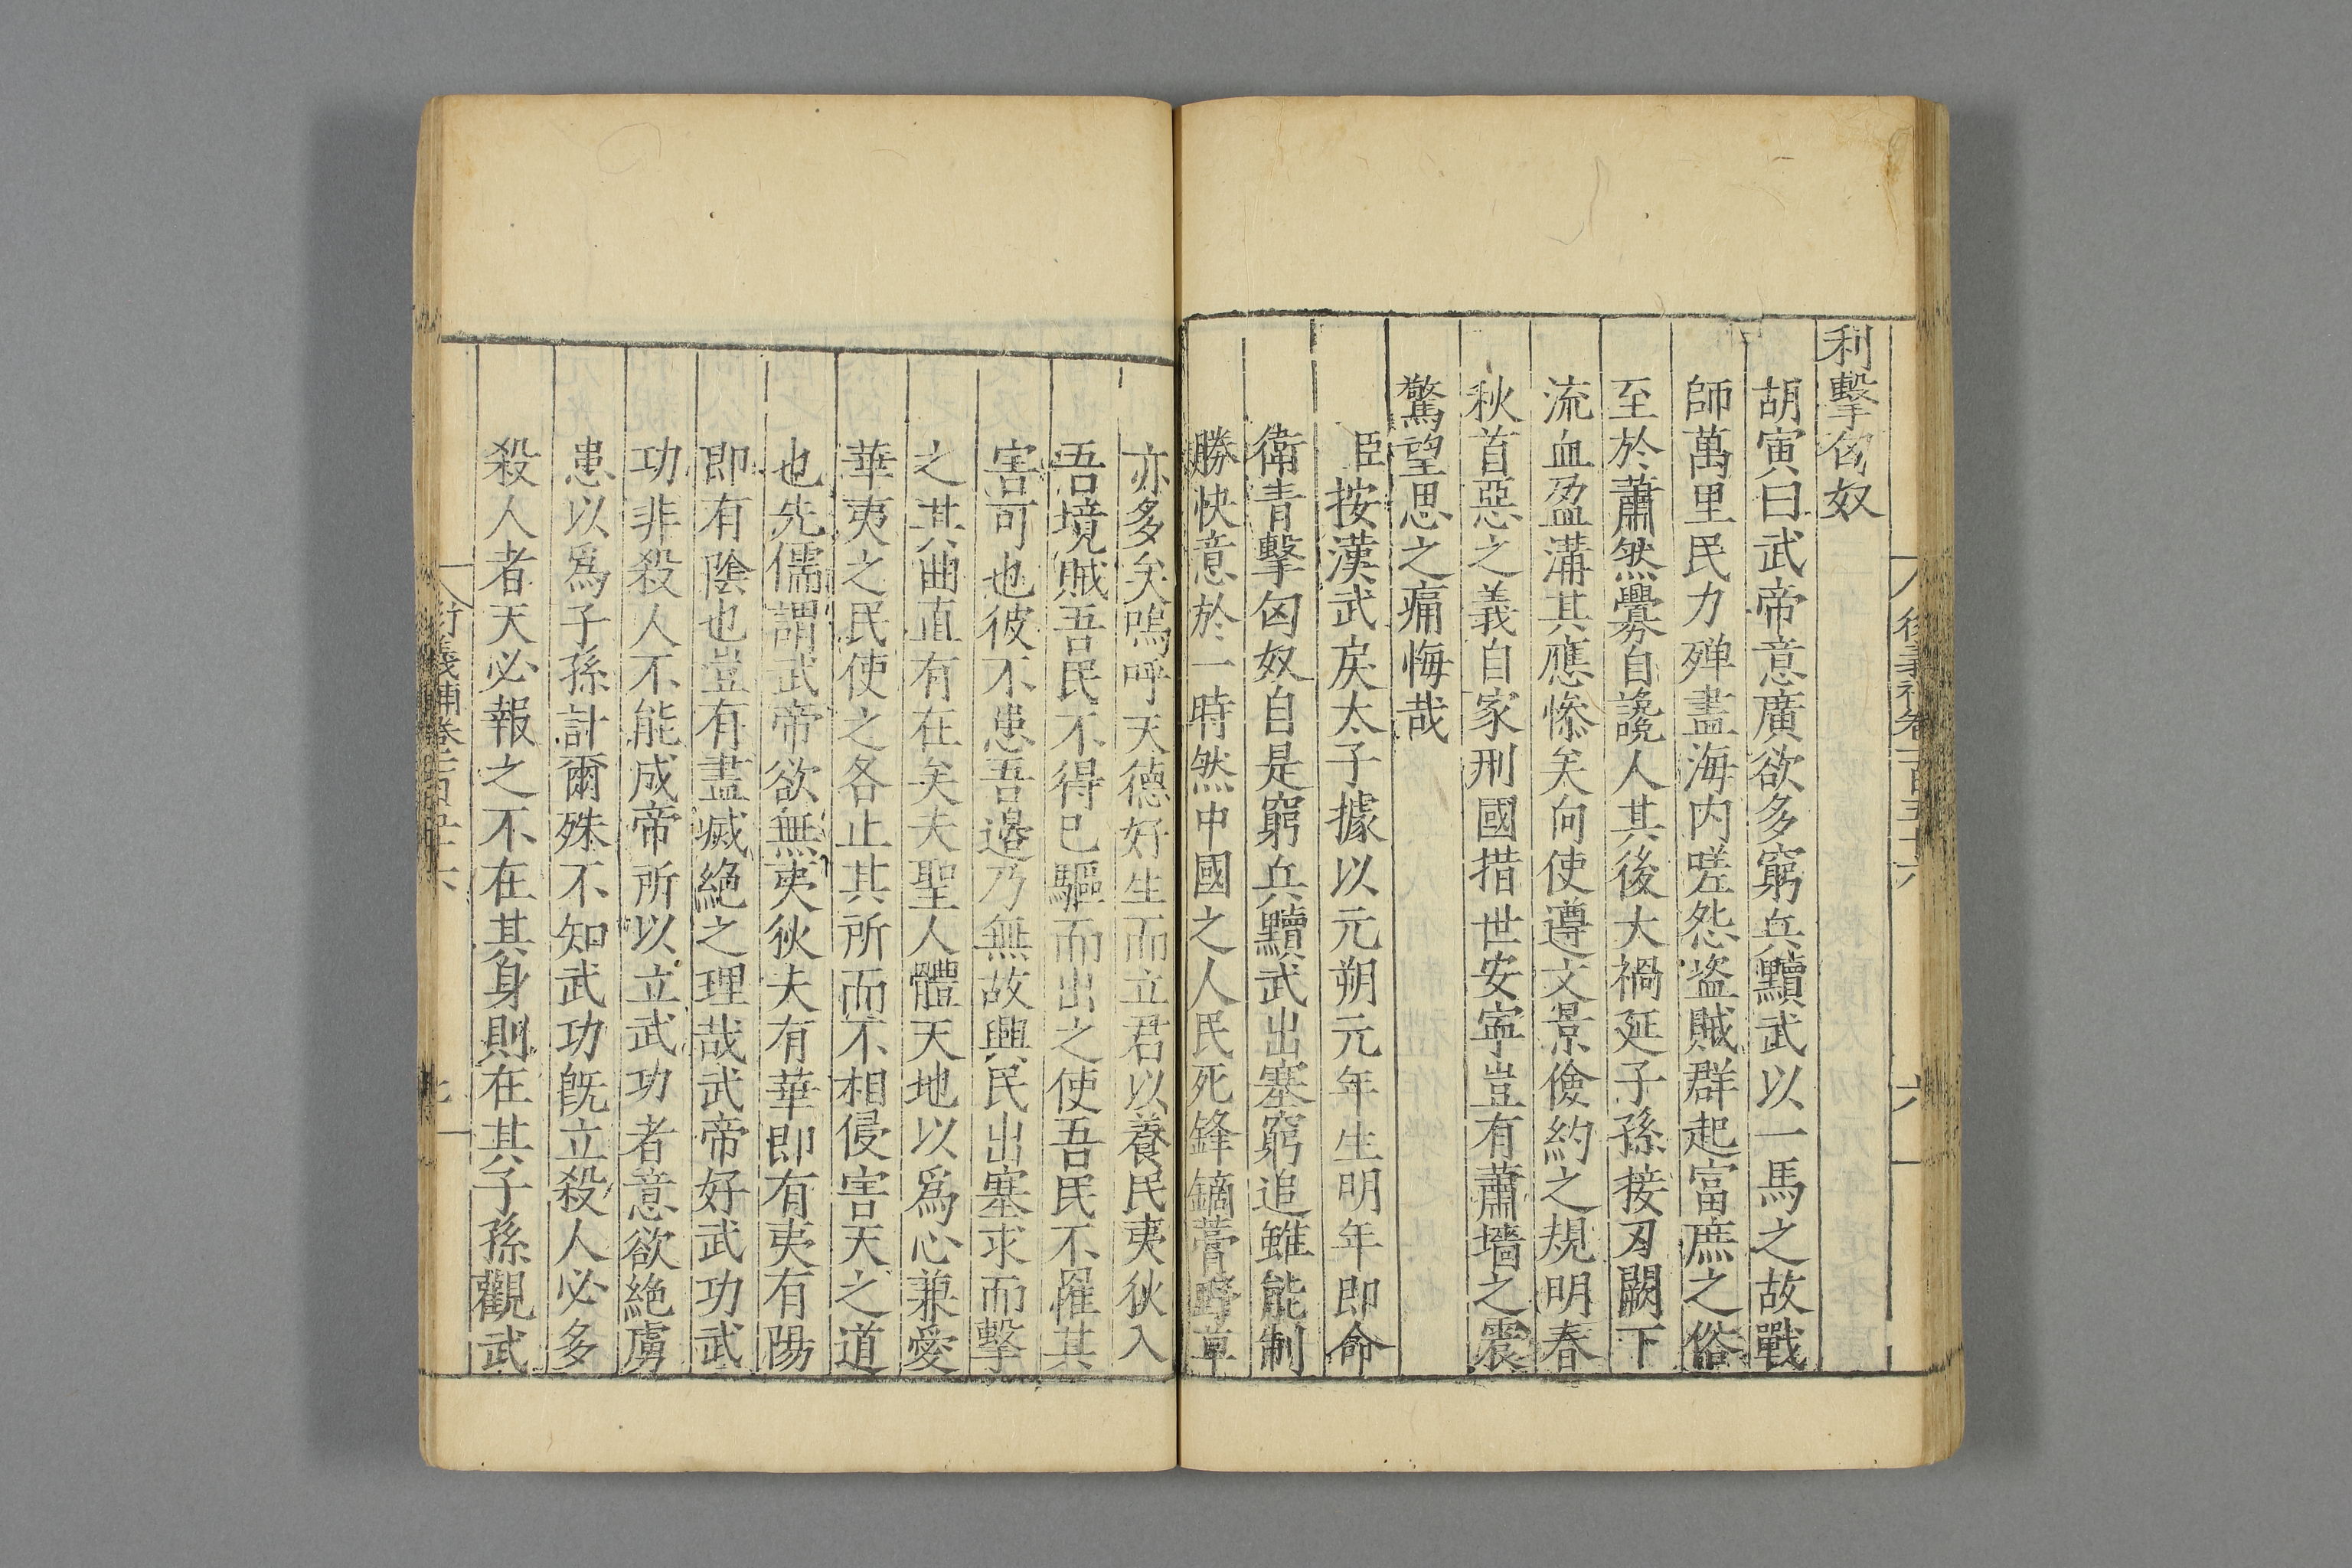 利擊匈奴
胡寅曰武帝意廣欲多窮兵黷武以一馬之故戰
師萬里民力殫盡海内嗟怨盗賊群起富庶之俗
至於蕭然釁自讒人其後大禍延子孫接刃闕下
流血盈溝其應慘矣向使遵文景儉約之規明春
秋首惡之義自家刑國措世安寧豈有蕭墻之震
驚望思之痛悔哉
臣按漢武戾太子據以元朔元年生明年即命
衛青擊匈奴自是窮兵黷武出塞窮追雖能制
勝快意於一時然中國之人民死鋒鏑膏野草
亦多矣嗚呼天德好生而立君以養民夷狄入
吾境賊吾民不得已驅而出之使吾民不罹其
害可也彼不患吾邊乃無故興民出塞求而擊
之其曲直有在矣夫聖人體天地以爲心兼愛
華夷之民使之各止其所而不相侵害天之道
也先儒謂武帝欲無夷狄夫有華即有夷有陽
即有陰也豈有盡滅絶之理哉武帝好武功武
功非殺人不能成帝所以立武功者意欲絶虜
患以爲子孫計爾殊不知武功旣立殺人必多
殺人者天必報之不在其身則在其子孫觀武
衍義補卷一百五十六